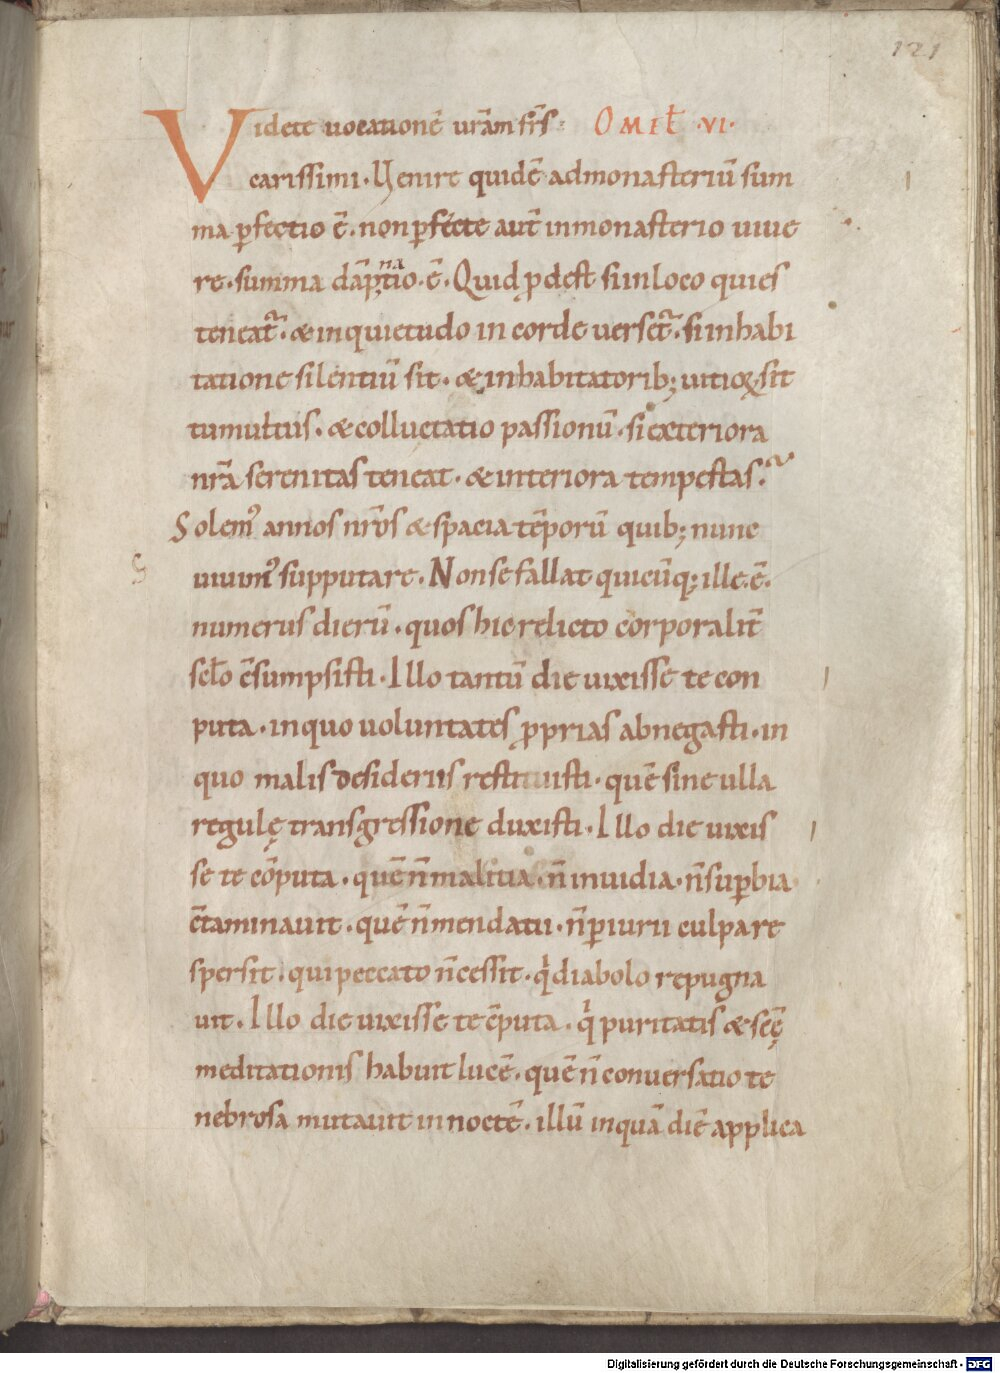 121
Videte uocationē urām frs̄ : OMIł ·VI·
carissimi · Uenire quidē ad monasteriū sum
ma ꝑfectio ē . non ꝑfecte aut̄ in monasterio uiue
re · summa dāp̄natio · ē . Quid ꝓdest si in loco quies
teneat᷑ · & inquietudo in corde verset᷑ · si in habi
tatione silentiū sit · & in habitatorib; uitioꝝ sit
tumultus · & colluctatio passionū · si exteriora
nrā serenitas teneat · & interiora tempestas ·
Solem᷒ annos nrōs & spacia tēporū quib; nunc
uiuim᷒ supputare · Non se fallat quicūq; ille · ē ·
numerus dierū · quos hic relicto corporalit̄
sclo c̄sumpsisti · Illo tantū die uixisse te con
puta · in quo uoluntates ꝓprias abnegasti · in
quo malis desideriis restituisti · quē sine ulla
regulę transgressione duxisti · Illo die uixis
se te cōputa · quē n̄ malitia · n̄ inuidia · n̄ suꝑbia
c̄taminauit · quē n̄ mendatii · n̄ ꝑiurii culpa re
spersit · qui peccato n̄ cessit · q̍ diabolo repugna
uit · Illo die uixisse te c̄puta · q̍ puritatis & scę̄
meditationis habuit lucē · quē n̄ conuersatio te
nebrosa mutauit in noctē · illū inquā diē applica
Digitalisierung gefördert durch die Deutsche Forschungsgemeinschaft - DFG